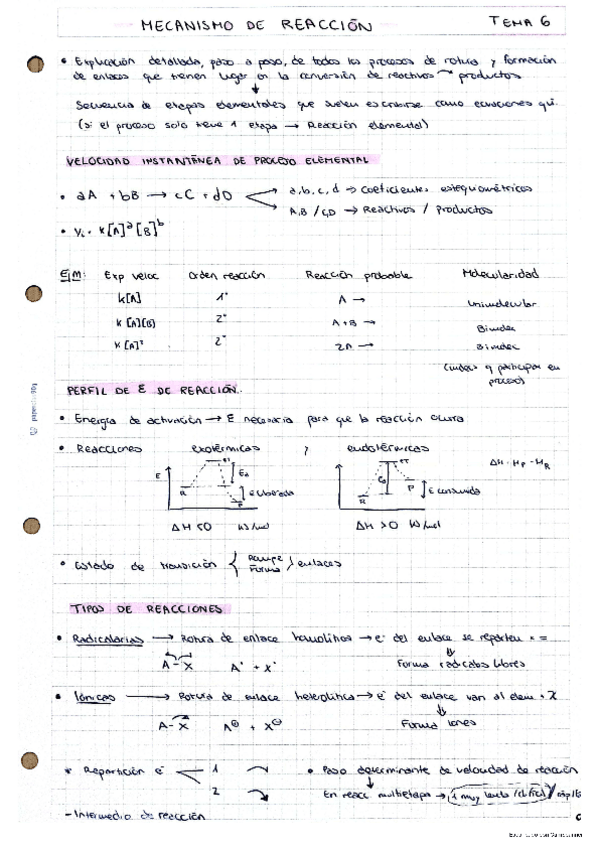 MECANISMO DE REACCIÓN TEMA 6
• Explicación detallada, paso a paso, de todos los procesos de rotura y formación
de enlaces que tienen lugar en la conversión de reactivos → productos
Secuencia de etapas elementales que suelen escribirse como ecuaciones qui.
(si el proceso solo tiene 1 etapa → Reacción elemental)
VELOCIDAD INSTANTÁNEA DE PROCESO ELEMENTAL
• aA + bB → cC + dD
a,b,c,d → Coeficientes estequiométricos
A,B / C,D → Reactivos / Productos
• Vi = K[A]ᵃ[B]ᵇ
Ejm: Exp veloc Orden reacción Reacción probable Molecularidad
k[A] 1º A → Unimolecular
K [A][B] 2º A+B → Bimolec
K [A]² 2º 2A → Bimolec
participar en
proceso
PERFIL DE E DE REACCIÓN.
• Energía de activación → E necesaria para que la reacción ocurra
• Reacciones exotérmicas y endotérmicas
ΔH = HP - HR
E R ET Ea E liberada P
R ET Ea P E consumida
ΔH <0 KJ/mol ΔH >0 KJ/mol
• Estado de transición { Rompe Forma } enlaces
TIPOS DE REACCIONES
• Radicalarias → Rotura de enlace homolítica → e⁻ del enlace se reparten x =
A - X A• + X• Forma radicales libres
• Iónicas → Rotura de enlace heterolítica → e⁻ del enlace van al elem + X
A - X A⊕ + X⊖ Forma iones
* Repartición e⁻ 1
2
• Paso determinante de velocidad de reacción
En reacc multietapa → 1 muy lenta
- Intermedio de reacción